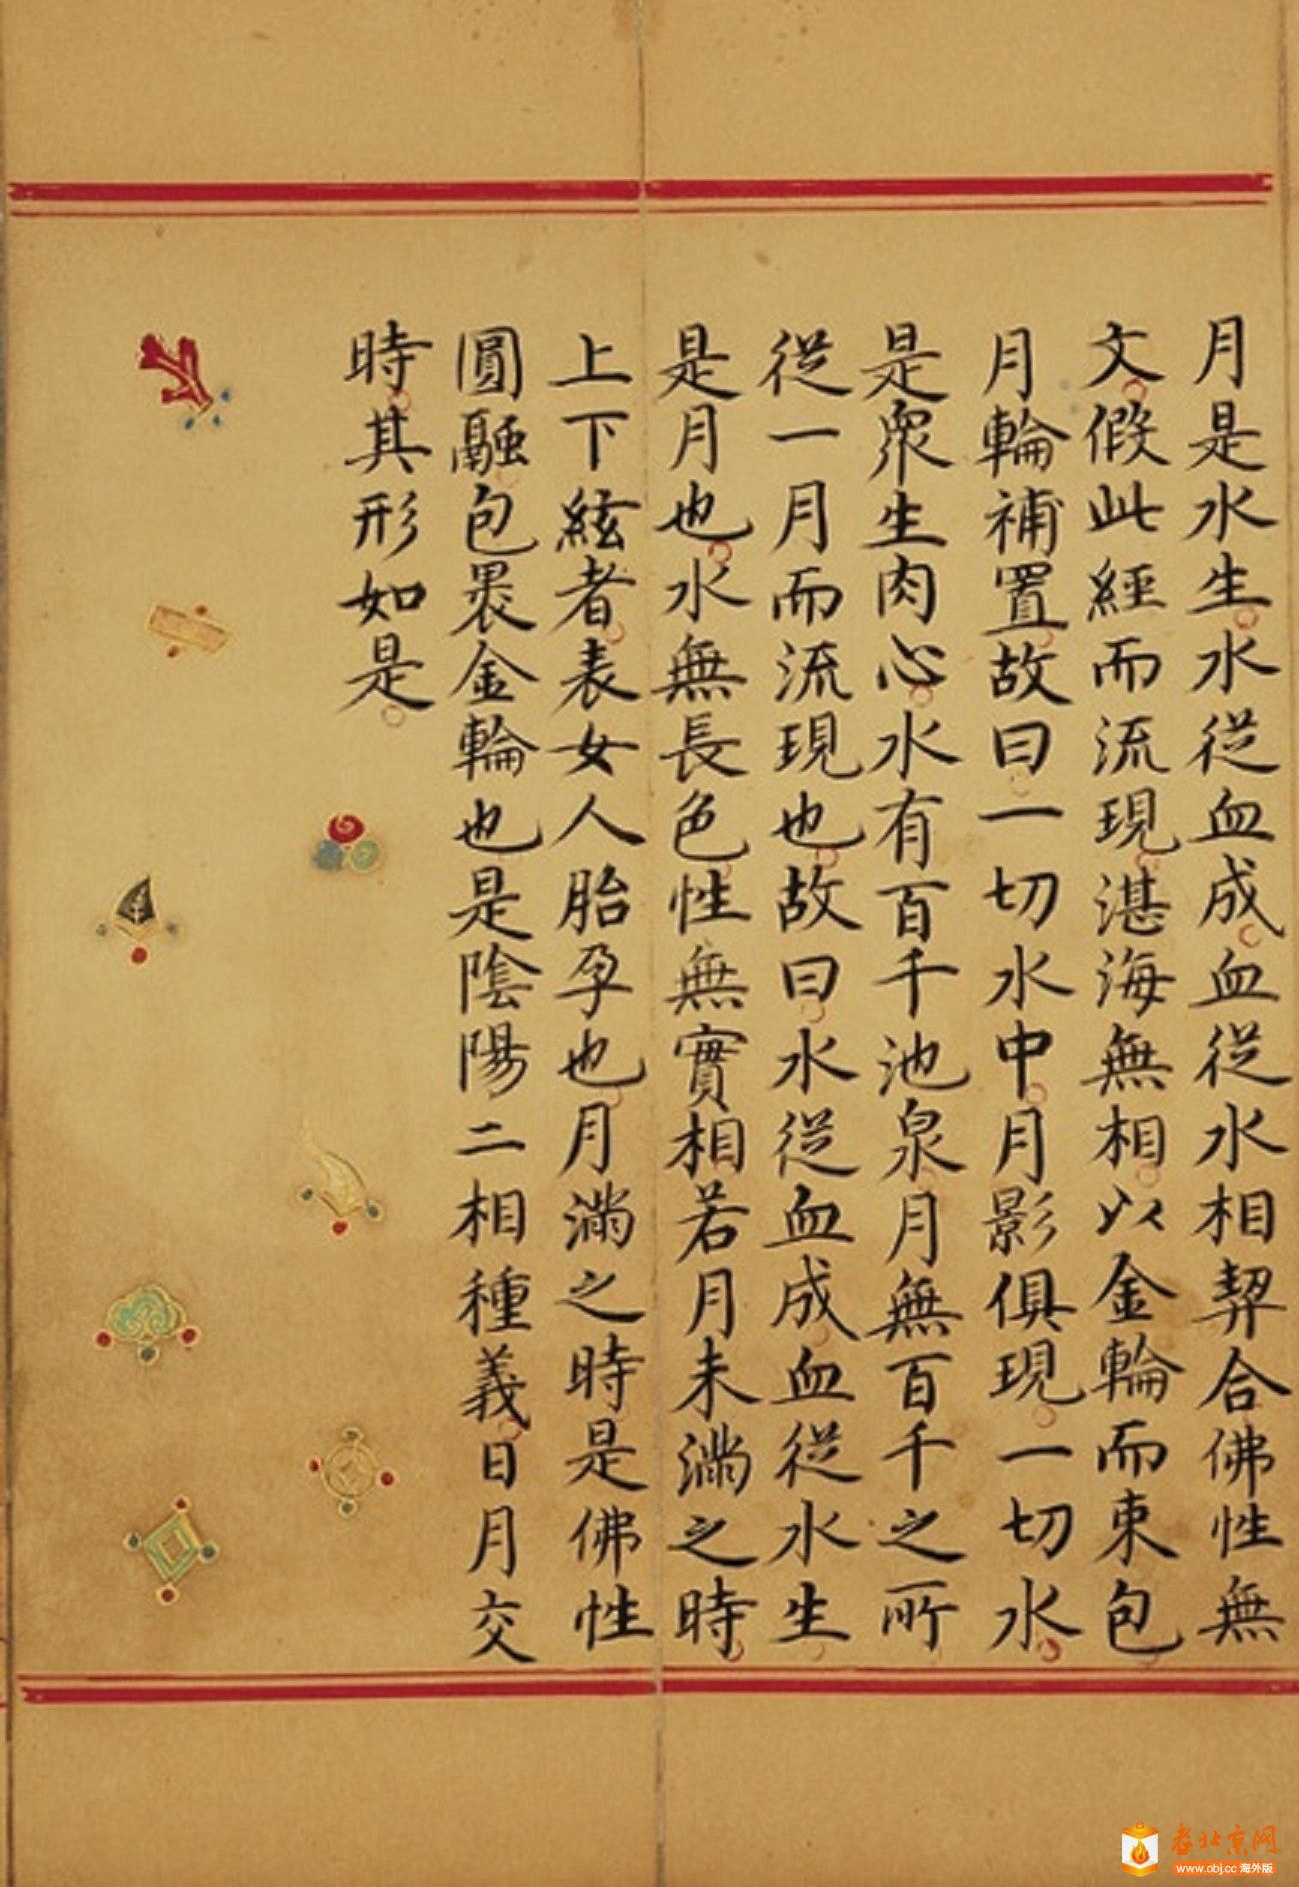 月是水生水從血成血從水相契合佛性無
文假此經而流現湛海無相以金輪而束包
月輪補置故曰一切水中月影俱現一切水
是衆生肉心水有百千池泉月無百千之所
從一月而流現也故曰水從血成血從水生
是月也水無長色性無實相若月未滿之時
上下絃者表女人胎孕也月滿之時是佛性
圓融包褁金輪也是陰陽二相種義日月交
時其形如是
老北京网
www.obj.cc 海外版